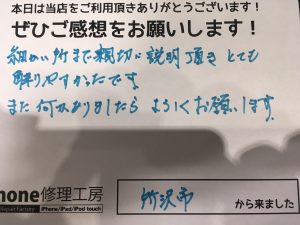 本日は当店をご利用頂きありがとうございます!
ぜひご感想をお願いします!
細かい所まで親切に説明頂きとても
解りやすかったです
また何かありましたらよろしくお願いします。
hone修理工房
Repair Factory iPhone/iPad/iPod touch
所沢市 から来ました